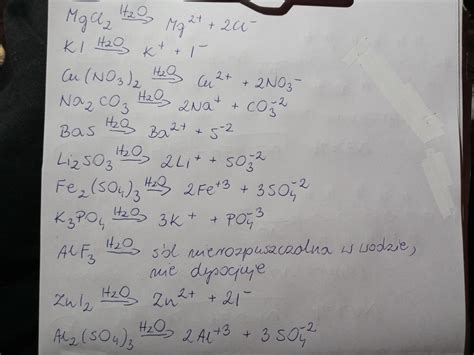 MgCl₂ H₂O→ Mg²⁺ + 2Cl⁻
KI H₂O→ K⁺ + I⁻
Cu(NO₃)₂ H₂O→ Cu²⁺ + 2NO₃⁻
Na₂CO₃ H₂O→ 2Na⁺ + CO₃⁻²
BaS H₂O→ Ba²⁺ + S⁻²
Li₂SO₃ H₂O→ 2Li⁺ + SO₃⁻²
Fe₂(SO₄)₃ H₂O→ 2Fe⁺³ + 3SO₄⁻²
K₃PO₄ H₂O→ 3K⁺ + PO₄⁻³
AlF₃ H₂O→ sól nierozpuszczalna w wodzie,
nie dysocjuje
ZnI₂ H₂O→ Zn²⁺ + 2I⁻
Al₂(SO₄)₃ H₂O→ 2Al⁺³ + 3SO₄⁻²